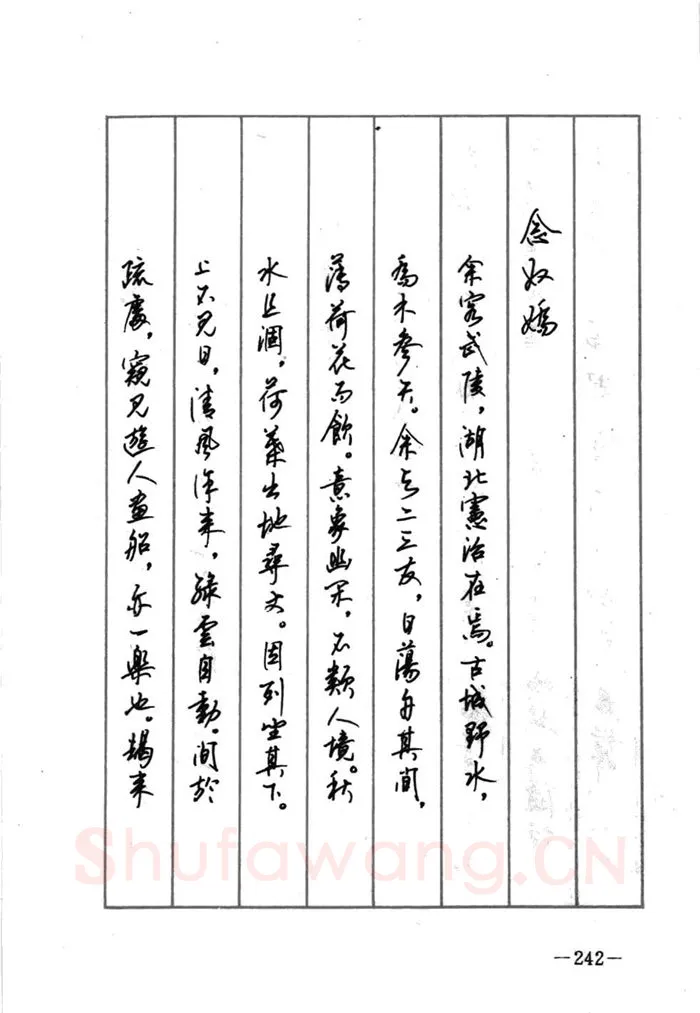 念奴嬌
余客武陵，湖北憲治在焉。古城野水，
喬木參天。余與二三友，日蕩舟其間，
薄荷花而飲。意象幽閑，不類人境。秋
水且涸，荷葉出地尋丈。因列坐其下。
上不見日，清風徐來，綠雲自動。間於
疏處，窺見遊人畫船，亦一樂也。朅来
Shufawang.CN
—242—